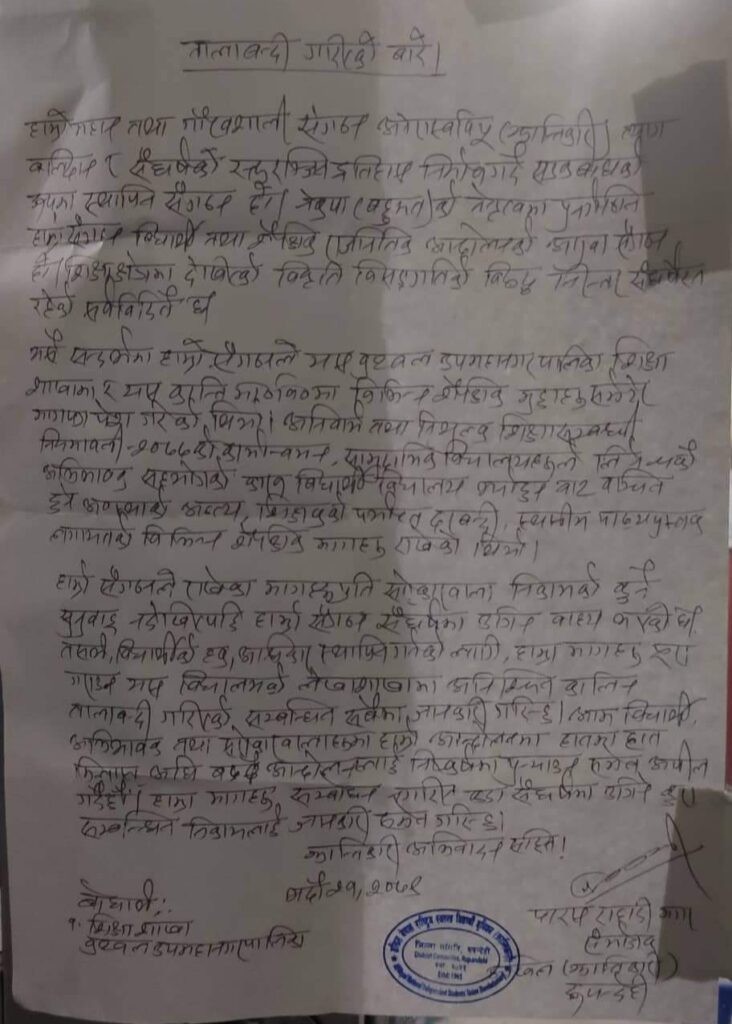 तालाबन्दी गरिएको बारे।
हाम्रो महान तथा गौरवशाली संगठन अनेरास्ववियू (क्रान्तिकारी) त्याग
बलिदान र संघर्षको रक्तरञ्जित इतिहास निर्माण गर्दै
रुपमा स्थापित संगठन हो। नेकपा (बहुमत)को नेतृत्वमा पुनर्गठित
हाम्रो संगठन विद्यार्थी तथा शैक्षिक राजनितिक आन्दोलनको अगुवा संगठन
हो। शिक्षा क्षेत्रमा देखिएको विकृति विसङ्गतिको विरुद्ध निरन्तर संघर्षरत
रहेको सर्वविदितै छ।
यसै सन्दर्भमा हाम्रो संगठनले यस बुटवल उपमहानगरपालिका शिक्षा
शाखामा र यस कान्ति मा.वि.मा विभिन्न शैक्षिक मुद्दाहरु समेटेर
मागपत्र पेश गरेको थियो। अनिवार्य तथा निशुल्क शिक्षा सम्बन्धी
नियमावली-२०७७ को कार्यान्वयन, सामुदायिक विद्यालयहरुले लिने
अभिभावक सहयोगको कारण विद्यार्थी विद्यालय भर्ना हुन बाट वञ्चित
हुने अवस्थाको अन्त्य, शिक्षकको पर्याप्त दरबन्दी, स्थानीय पाठ्यपुस्तक
लगायतका विभिन्न शैक्षिक मागहरु राखेको थियो।
हाम्रो संगठनले राखेका मागहरुप्रति सरोकारवाला निकायको कुनै
सुनुवाइ नदेखिएपछि हाम्रो संगठन संघर्षमा उत्रिन बाध्य भएको छ।
तसर्थ, विद्यार्थीको हक, अधिकार स्थापित गर्नको लागि, हाम्रा मागहरु पुरा
गराउन यस विद्यालयको लेखा शाखामा अनिश्चित कालिन
तालाबन्दी गरिएको सम्बन्धित सबैमा जानकारी गरिन्छ। आम विद्यार्थी,
अभिभावक तथा सरोकारवालाहरुमा हाम्रो आन्दोलनमा हातमा हात
मिलाएर अघि बढ्दै आन्दोलनलाई निष्कर्षमा पुर्‍याउन समेत अपील
गर्दछौं। हाम्रा मागहरु सम्बोधन नगरिए कडा संघर्षमा उत्रिने कुरा
सम्बन्धित निकायलाई जानकारी समेत गरिन्छ।
क्रान्तिकारी अभिवादन सहित!
भदौ २१, २०७९
बोधार्थ:
१. शिक्षा शाखा
बुटवल उपमहानगरपालिका
पारस राहादी मगर
संयोजक
(क्रान्तिकारी)
रुपन्देही
जिल्ला समिति, रुपन्देही
District Committee, Rupandehi